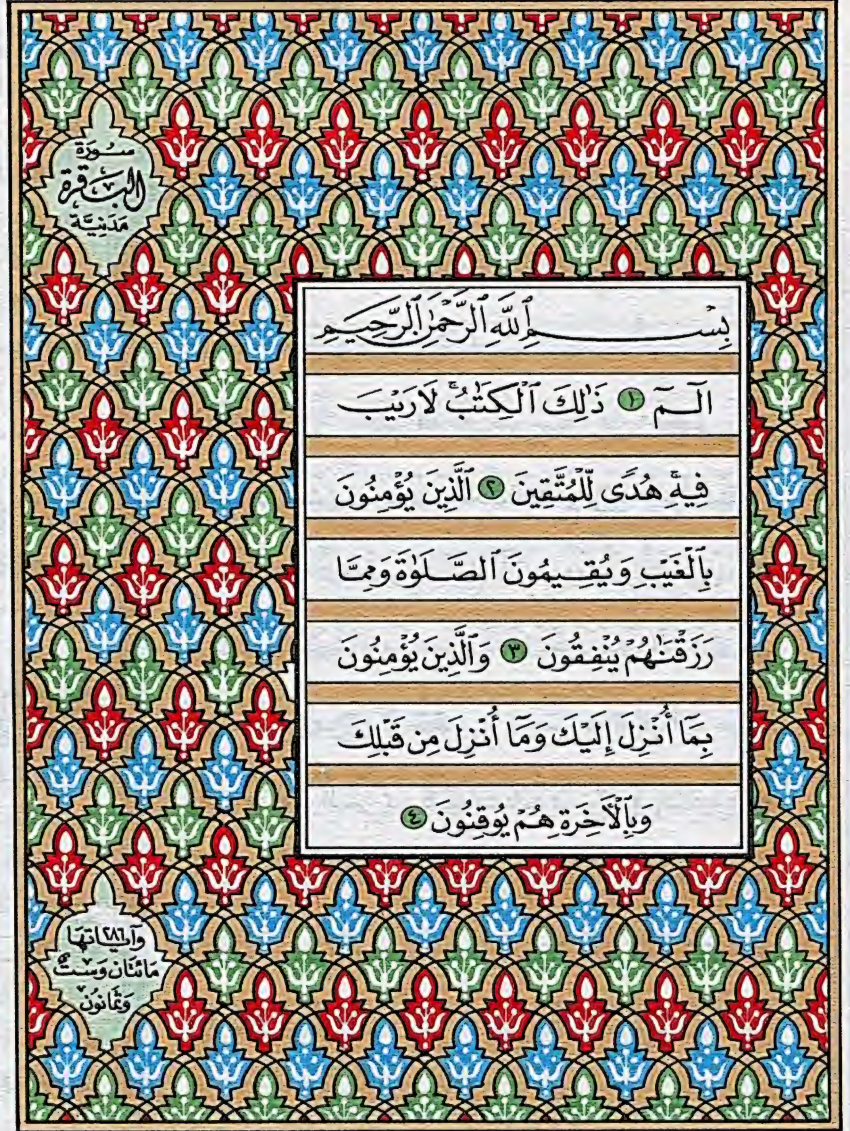 سورة
البقرة
مدنية
بِسْمِ ٱللَّهِ ٱلرَّحْمَٰنِ ٱلرَّحِيمِ
الٓمٓ ١ ذَٰلِكَ ٱلْكِتَٰبُ ۛ لَا رَيْبَ
فِيهِ ۛ هُدًى لِّلْمُتَّقِينَ ٢ ٱلَّذِينَ يُؤْمِنُونَ
بِٱلْغَيْبِ وَيُقِيمُونَ ٱلصَّلَوٰةَ وَمِمَّا
رَزَقْنَٰهُمْ يُنْفِقُونَ ٣ وَٱلَّذِينَ يُؤْمِنُونَ
بِمَآ أُنْزِلَ إِلَيْكَ وَمَآ أُنْزِلَ مِن قَبْلِكَ
وَبِٱلْأَخِرَةِ هُمْ يُوقِنُونَ ٤
وآياتها ٢٨٦
مائتان وست
وثمانون